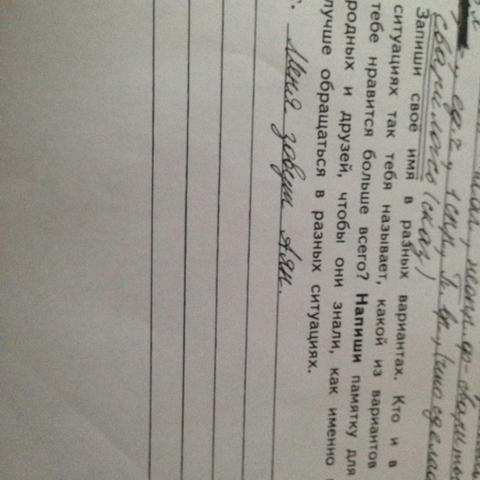 сварилось (сказ)
Запиши своё имя в разных вариантах. Кто и в
ситуациях так тебя называет, какой из вариантов
тебе нравится больше всего? Напиши памятку для
родных и друзей, чтобы они знали, как именно
лучше обращаться в разных ситуациях.
Меня зовут Аян.